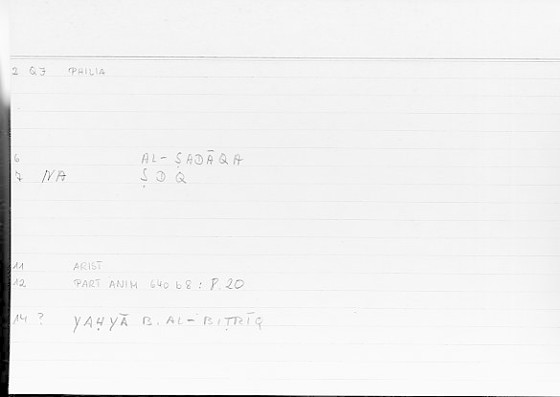 2 QJ PHILIA
6 AL-ṢADĀQA
7 NA ṢDQ
11 ARIST
12 PART ANIM 640 b 8 : P. 20
14 ? YAḤYĀ B. AL-BIṬRĪQ